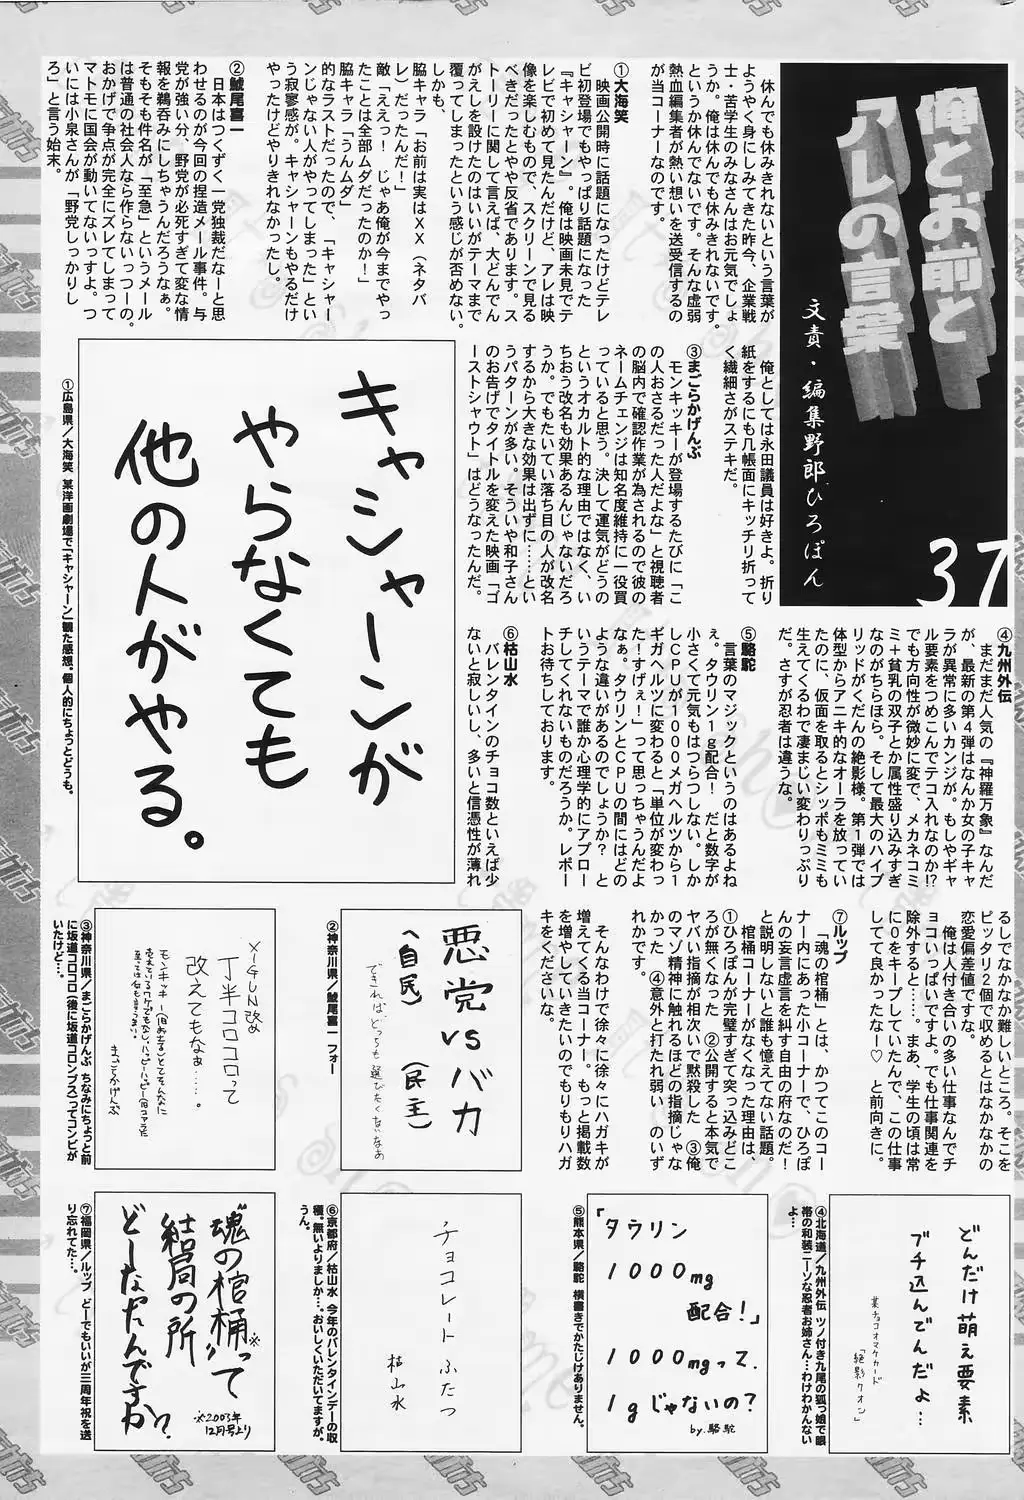 俺とお前と
アレの言葉
文責・編集野郎ひろぽん
37
休んでも休みきれないという言葉が
ようやく身にしみてきた昨今、企業戦
士・苦学生のみなさんはお元気でしょ
うか。俺は休んでも休みきれないです。
というか休んでないです。そんな虚弱
熱血編集者が熱い想いを送受信するの
が当コーナーなのです。
①大海笑
映画公開時に話題になったけどテレ
ビ初登場でもやっぱり話題になった
『キャシャーン』。俺は映画未見でテ
レビで初めて見たんだけど、アレは映
像を楽しむもので、スクリーンで見る
べきだったとやや反省であります。ス
トーリーに関して言えば、大どんでん
がえしを設けたのはいいがテーマまで
覆ってしまったという感じが否めない。
しかも、
脇キャラ「お前は実はXX(ネタバ
レ)だったんだ!」
敵「ええっ! じゃあ俺が今までやっ
たことは全部ムダだったのか!」
脇キャラ「うんムダ」
的なラストだったので、「キャシャー
ンじゃない人がやってしまった」とい
う寂寥感が。キャシャーンもやるだけ
やったけどやりきれなかったし。
②鯱尾喜一
日本はつくづく一党独裁だなーと思
わせるのが今回の捏造メール事件。与
党が強い分、野党が必死すぎて変な情
報を鵜呑みにしちゃうんだろうなぁ。
そもそも件名が「至急」というメール
は普通の社会人なら作らないっつーの。
おかげで争点が完全にズレてしまって
マトモに国会が動いてないっすよ。つ
いには小泉さんが「野党しっかりし
ろ」と言う始末。
俺としては永田議員は好きよ。折り
紙をするにも几帳面にキッチリ折って
く繊細さがステキだ。
③まごらかげんぶ
モンキッキーが登場するたびに「こ
の人おさるだった人だよな」と視聴者
の脳内で確認作業が為されるので彼の
ネームチェンジは知名度維持に一役買
っていると思う。決して運気がどうの
というオカルト的な理由ではなく、い
ちおう改名も効果あるんじゃないだろ
うか。でもたいてい落ち目の人が改名
するから大きな効果は出ずに……とい
うパターンが多い。そういや和子さん
のお告げでタイトルを変えた映画「ゴ
ーストシャウト」はどうなったんだ。
キャシャーンが
やらなくても
他の人がやる。
①広島県/大海笑 某洋画劇場で「キャシャーン」観た感想。個人的にちょっとどうも。
④九州外伝
まだまだ人気の『神羅万象』なんだ
が、最新の第4弾はなんか女の子キャ
ラが異常に多いカンジが。もしやギャ
ル要素をつめこんでテコ入れなのか!?
でも方向性が微妙に変で、メカネコミ
ミ+貧乳の双子とか属性盛り込みすぎ
なのがちらほら。そして最大のハイブ
リッドがくだんの絶影様。第1弾では
体型からアニキ的なオーラを放ってい
たのに、仮面を取るとシッポもミミも
生えてくるわで凄まじい変わりっぷり
だ。さすが忍者は違うな。
⑤駱駝
言葉のマジックというのはあるよね
ぇ。タウリン1g配合! だと数字が
小さくて元気もはつらつしない。しか
しCPUが1000メガヘルツから1
ギガヘルツに変わると「単位が変わっ
た!すげぇ!」って思っちゃうんだよ
なぁ。タウリンとCPUの間にはどの
ような違いがあるのでしょうか? と
いうテーマで誰か心理学的にアプロー
チしてくれないものだろうか。レポー
トお待ちしております。
⑥枯山水
バレンタインのチョコ数といえば少
ないと寂しいし、多いと信憑性が薄れ
るしでなかなか難しいところ。そこを
ピッタリ2個で収めるとはなかなかの
恋愛偏差値ですな。
俺は人付き合いの多い仕事なんでチ
ョコいっぱいですよ。でも仕事関連を
除外すると……。まあ、学生の頃は常
に0をキープしていたんで、この仕事
してて良かったなー♡ と前向きに。
⑦ルップ
「魂の棺桶」とは、かつてこのコー
ナー内にあった小コーナーで、ひろぽ
んの妄言虚言を糾す自由の府なのだ!
と説明しないと誰も憶えてない話題。
棺桶コーナーがなくなった理由は、
①ひろぽんが完璧すぎて突っ込みどこ
ろが無くなった ②公開すると本気で
ヤバい指摘が相次いで黙殺した ③俺
のマゾ精神に触れるほどの指摘じゃな
かった ④意外と打たれ弱い のいず
れかです。
そんなわけで徐々に徐々にハガキが
増えてくる当コーナー。もっと掲載数
を増やしていきたいのでもりもりハガ
キをくださいな。
悪党vsバカ
(自民) (民主)
できればどっちも選びたくないなぁ
②神奈川県/鯱尾喜一 フォー
メーGUN改め
丁半コロコロって
改えてもなぁ…。
まごらかげんぶ
③神奈川県/まごらかげんぶ ちなみにちょっと前
に坂道コロコロ(後に坂道コロンブス)ってコンビが
いたけど…。
どんだけ萌え要素
ブチ込んでんだよ…
某チョコオマケカード
「絶影クオン」
④北海道/九州外伝 ツノ付き九尾の狐っ娘で眼
帯の和装ニーソな忍者お姉さん…わけわかんない
よ…
「タウリン
1000mg
配合!」
1000mgって、
1gじゃないの?
by.駱駝
⑤熊本県/駱駝 横書きでかたじけありません。
チョコレート ふたつ
枯山水
⑥京都府/枯山水 今年のバレンタインデーの収
穫。無いよりましか…。おいしくいただいてますが。
うん。
“魂の棺桶”※って
結局の所
どーなったんですか?
※2003年
12月号より
⑦福岡県/ルップ どーでもいいが三周年祝を送
り忘れてた…。